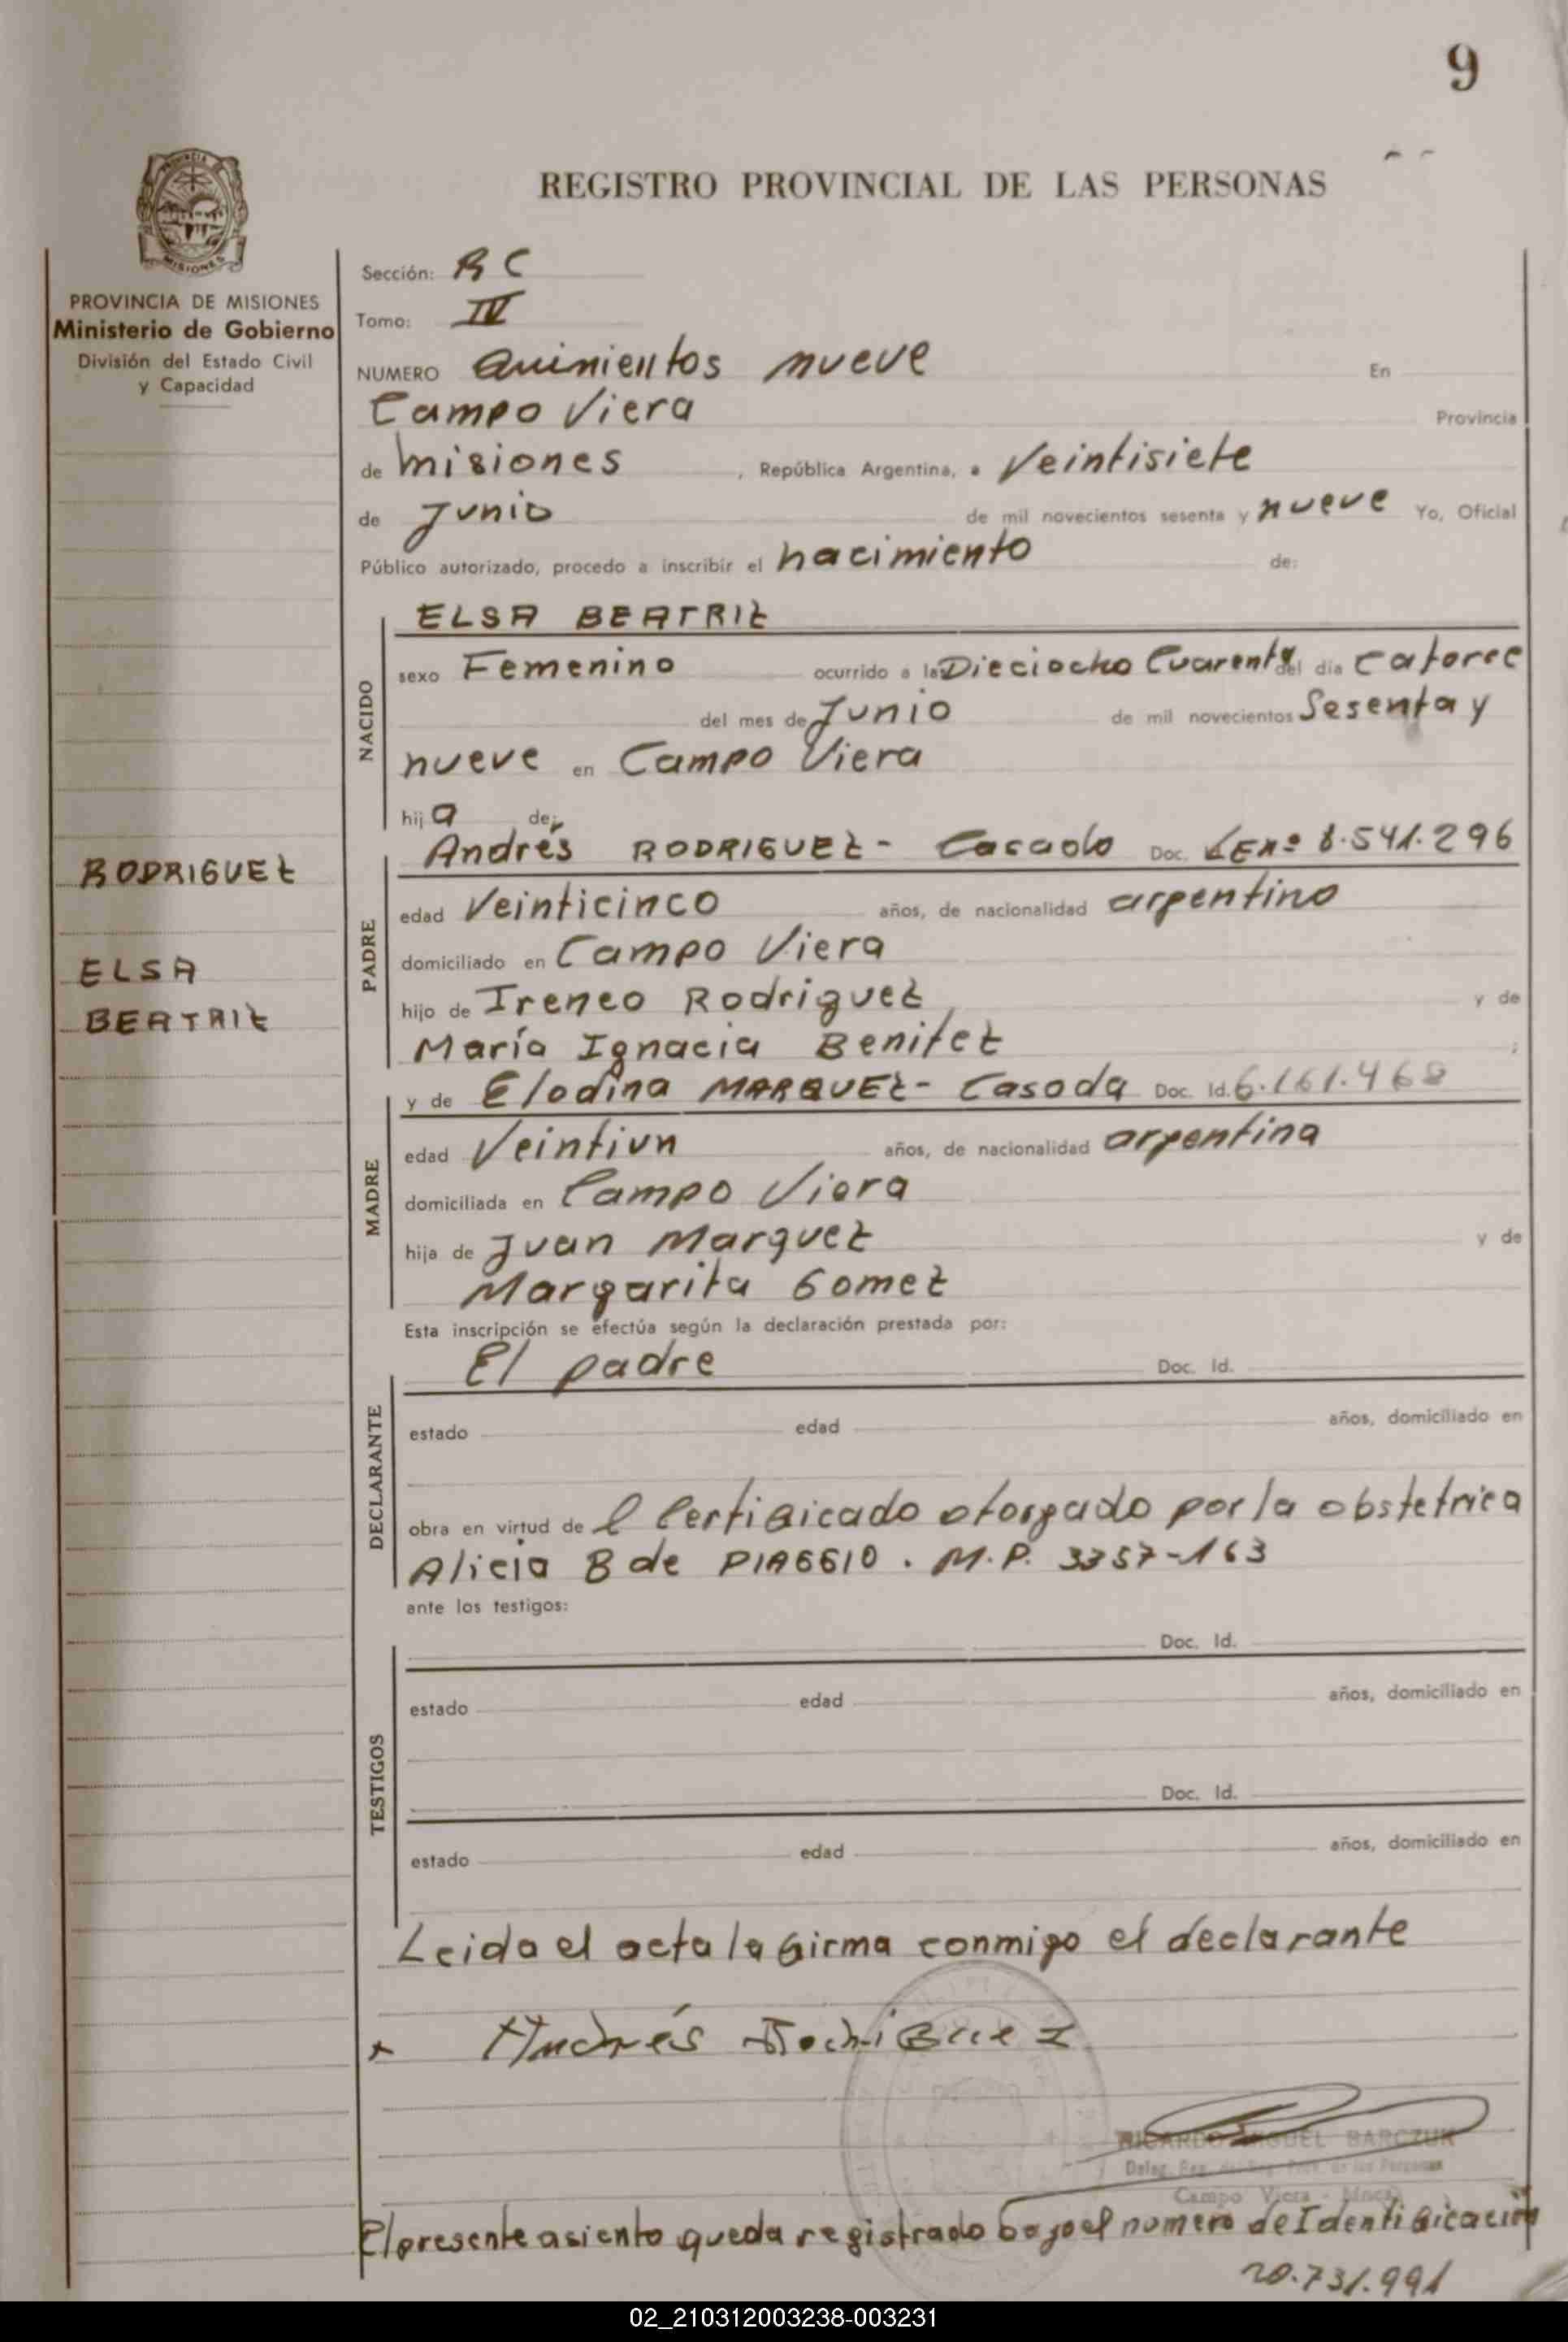 9
REGISTRO PROVINCIAL DE LAS PERSONAS
MISIONES
PROVINCIA DE MISIONES
Ministerio de Gobierno
División del Estado Civil
y Capacidad
Sección: RC
Tomo: IV
NUMERO Quinientos nueve En
Campo Viera Provincia
de Misiones, República Argentina, a Veintisiete
de Junio de mil novecientos sesenta y nueve Yo, Oficial
Público autorizado, procedo a inscribir el nacimiento de:
NACIDO
ELSA BEATRIZ
sexo Femenino ocurrido a las Dieciocho Cuarenta del día catorce
del mes de Junio de mil novecientos Sesenta y
nueve en Campo Viera
hija de:
RODRIGUEZ
ELSA
BEATRIZ
PADRE
Andrés RODRIGUEZ - Casado Doc. LE Nº 8.541.296
edad Veinticinco años, de nacionalidad argentino
domiciliado en Campo Viera
hijo de Ireneo Rodriguez y de
María Ignacia Benitez ;
MADRE
y de Elodina MARQUEZ - Casada Doc. Id. 6.161.468
edad Veintiun años, de nacionalidad argentina
domiciliada en Campo Viera
hija de Juan Marquez y de
Margarita Gomez
Esta inscripción se efectúa según la declaración prestada por:
DECLARANTE
El padre Doc. Id.
estado edad años, domiciliado en
obra en virtud de l Certificado otorgado por la obstetrica
Alicia B de PIAGGIO. M.P. 3357-163
ante los testigos:
TESTIGOS
Doc. Id.
estado edad años, domiciliado en
Doc. Id.
estado edad años, domiciliado en
Leida el acta la firma conmigo el declarante
Andrés Rodriguez
RICARDO MIGUEL BARCZUK
Deleg. Reg. de las Personas
Campo Viera - Mnes.
El presente asiento queda registrado bajo el numero de Identificación
20.731.991
02_210312003238-003231